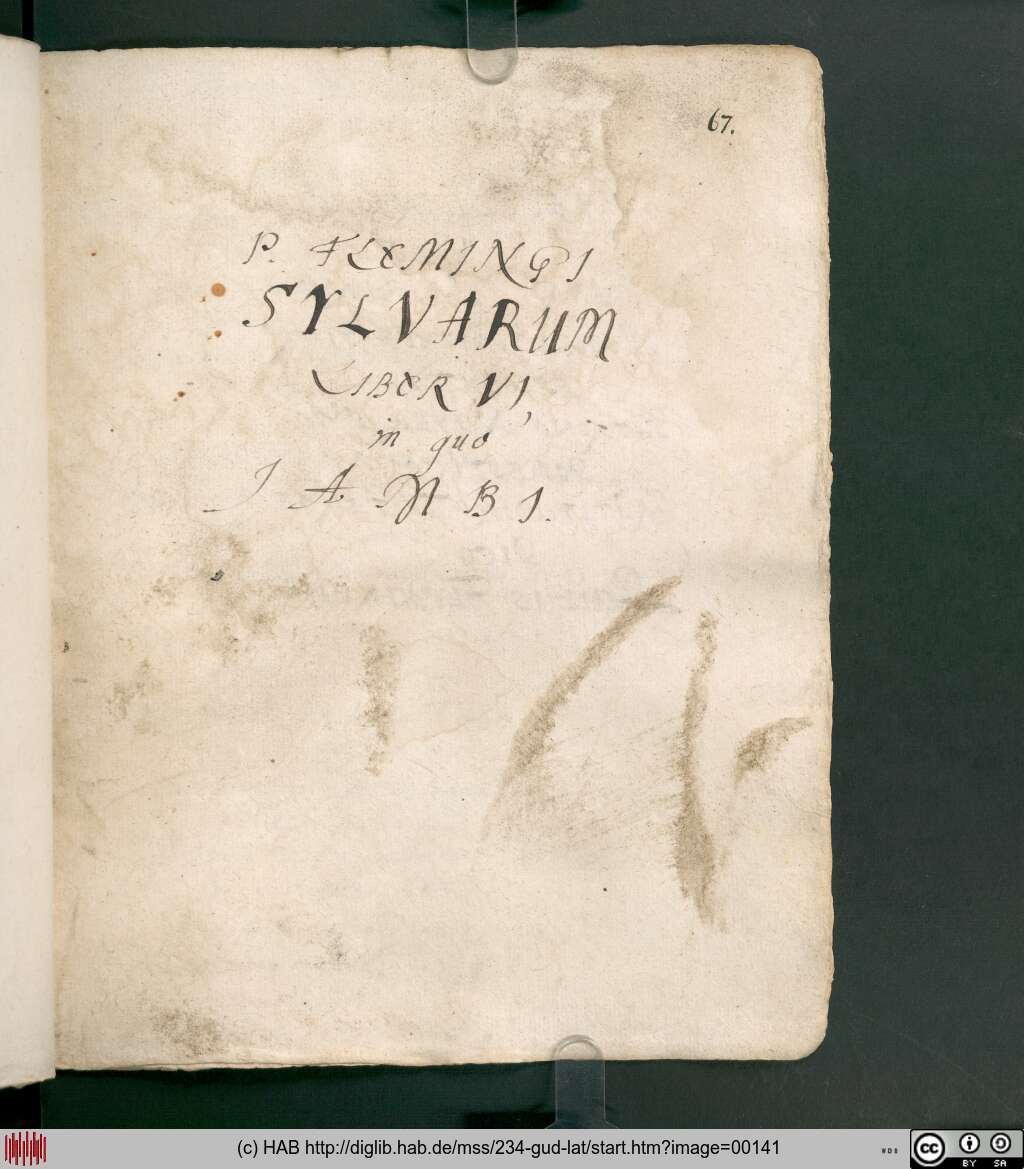 67.
P. FLEMINGI
SYLVARUM
LIBER VI,
in quo
IAMBI.
(c) HAB http://diglib.hab.de/mss/234-gud-lat/start.htm?image=00141
cc BY SA